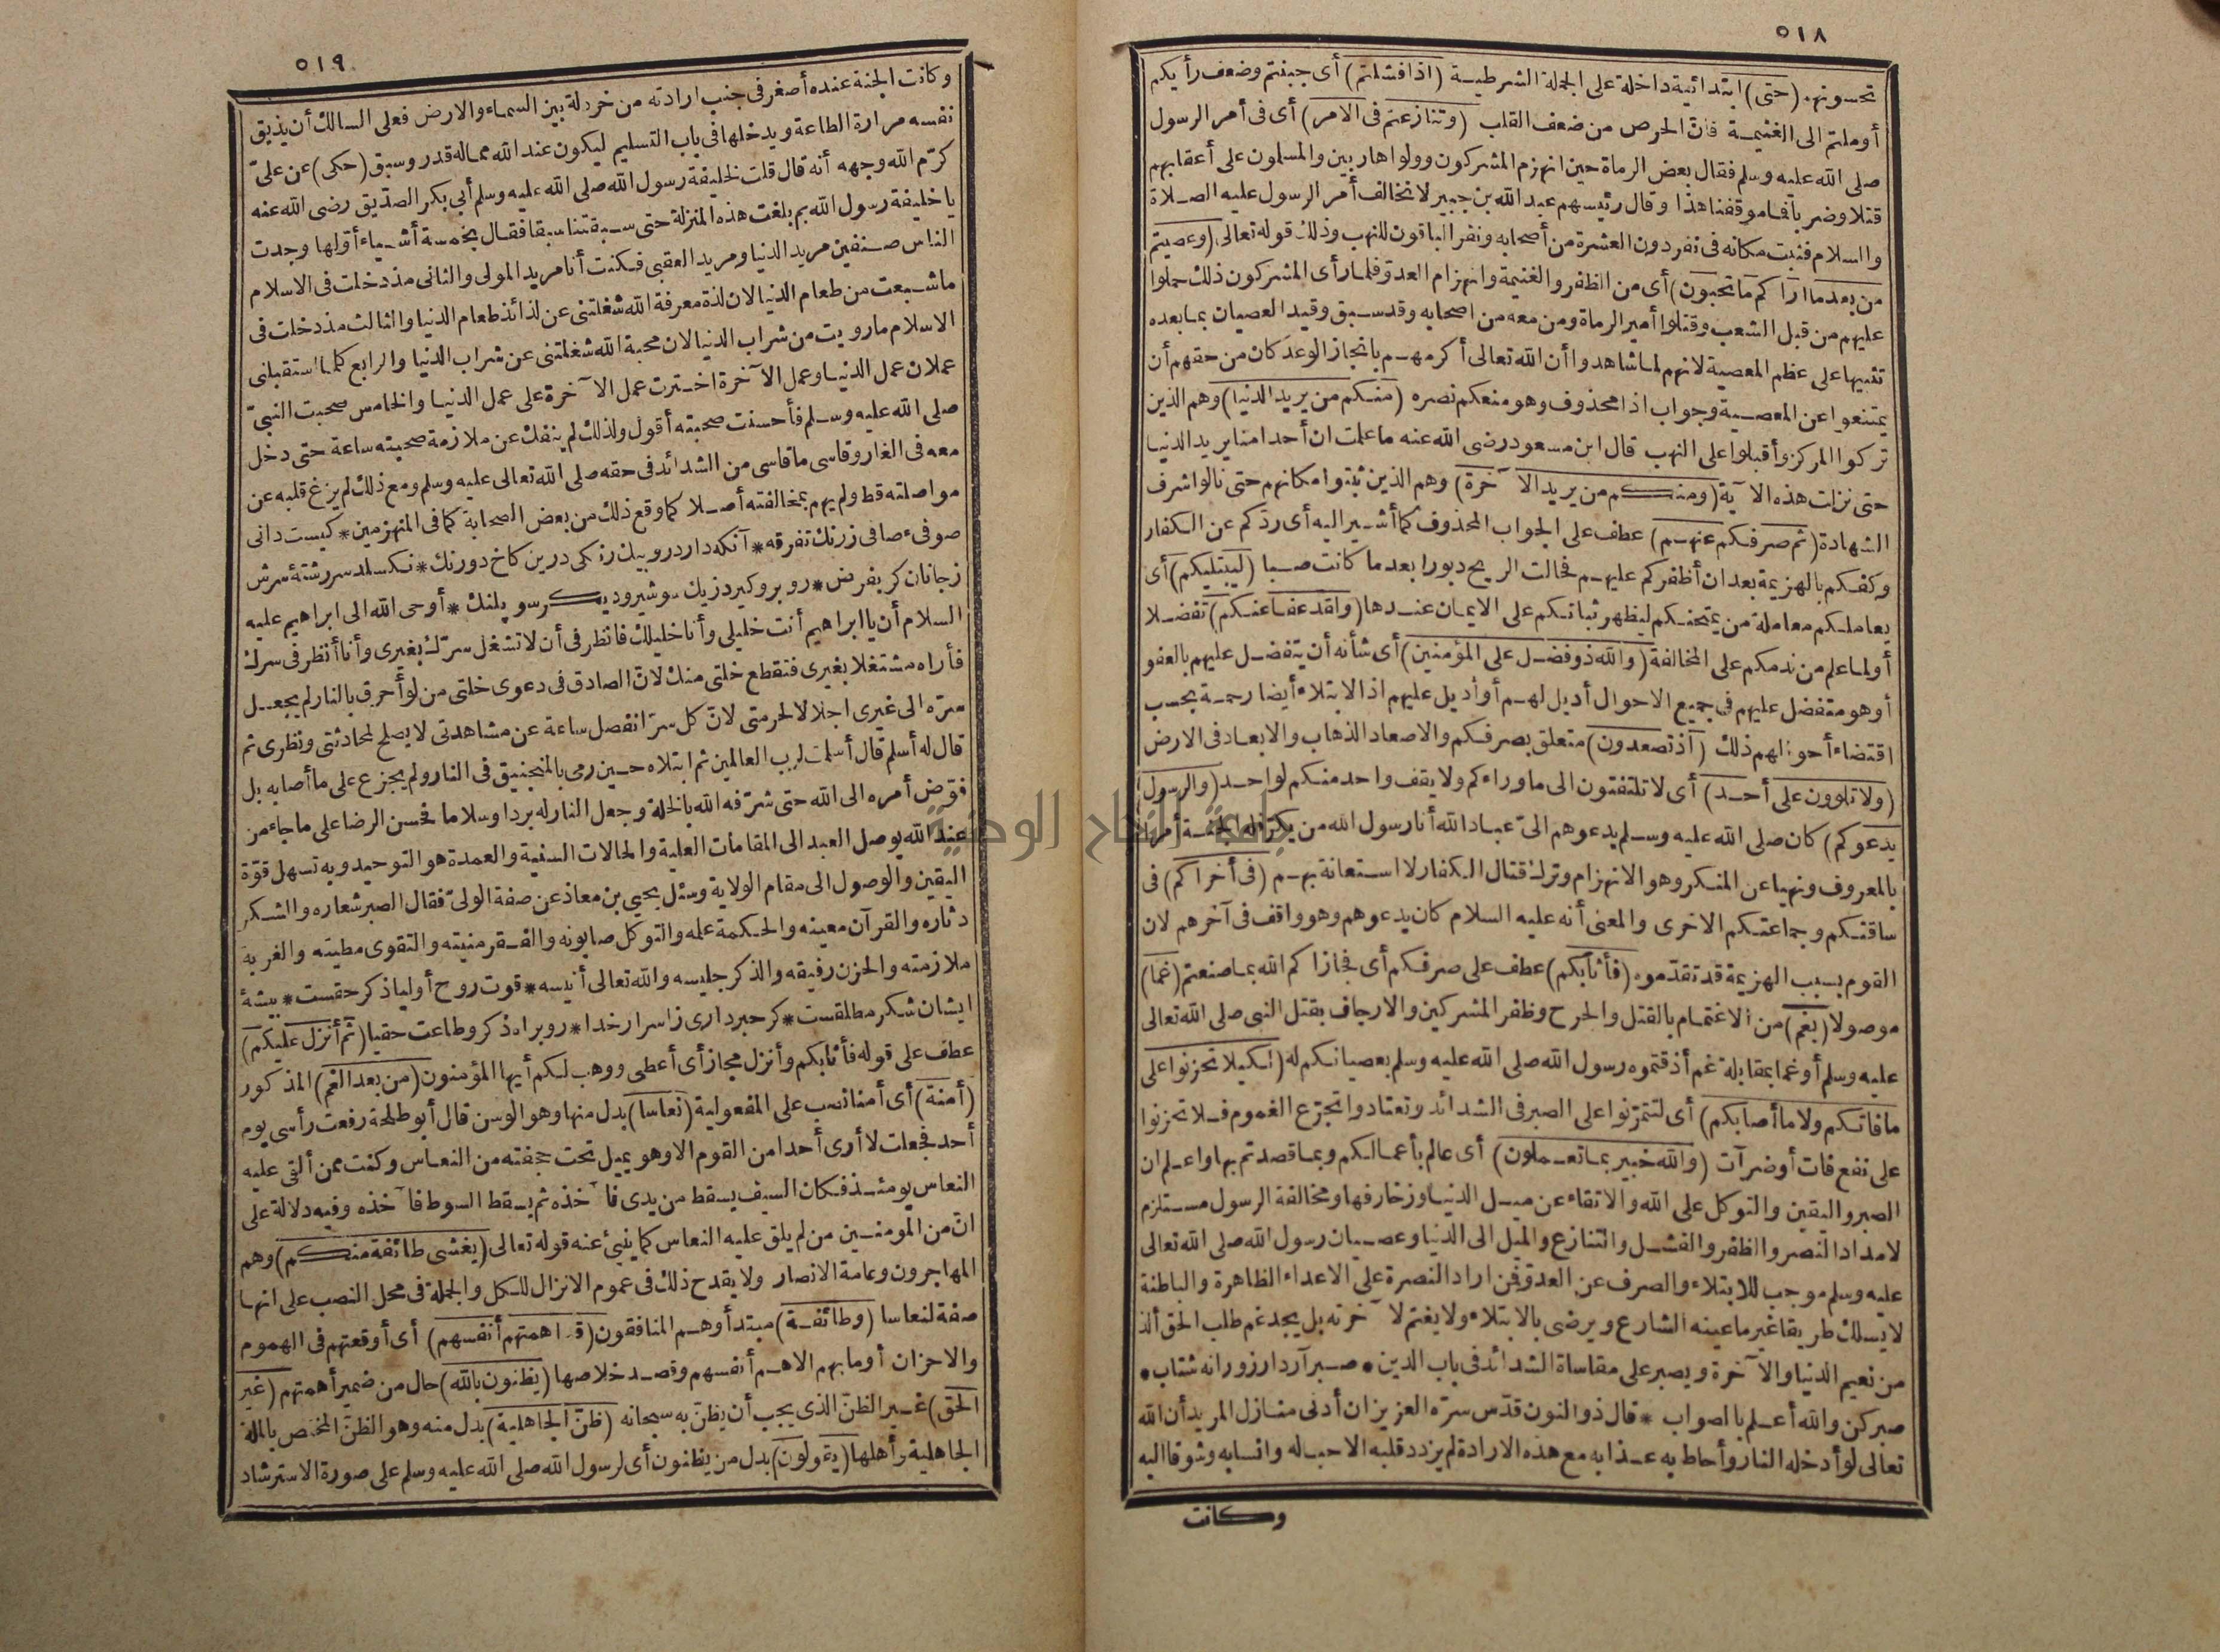 ٥١٨
تحسونهم (حتى) ابتدائية داخلة على الجملة الشرطية (اذا فشلتم) أى جبنتم وضعف رأيكم
أوملتم الى الغنيمة فانّ الحرص من ضعف القلب (وتنازعتم فى الامر) أى فى أمر الرسول
صلى الله عليه وسلم فقال بعض الرماة حين انهزم المشركون وولوا هاربين والمسلمون على أعقابهم
قتلا وضربا فما موقفنا هذا وقال رئيسهم عبد الله بن جبير لا نخالف أمر الرسول عليه الصلاة
والسلام فثبت مكانه فى نفر دون العشرة من أصحابه ونفر الباقون للنهب وذلك قوله تعالى (وعصيتم
من بعد ما اراكم ما تحبون) أى من الظفر والغنيمة وانهزام العدو فلما رأى المشركون ذلك حملوا
عليهم من قبل الشعب وقتلوا أمير الرماة ومن معه من اصحابه وقد سبق وقيد العصيان بما بعده
تنبيها على عظم المعصية لانهم لما شاهدوا أن الله تعالى أكرمهم بانجاز الوعد كان من حقهم أن
يمتنعوا عن المعصية وجواب اذا محذوف وهو منعكم نصره (منكم من يريد الدنيا) وهم الذين
تركوا المركز وأقبلوا على النهب قال ابن مسعود رضى الله عنه ما علمت ان أحدا منا يريد الدنيا
حتى نزلت هذه الآية (ومنكم من يريد الآخرة) وهم الذين ثبتوا مكانهم حتى نالوا شرف
الشهادة (ثم صرفكم عنهم) عطف على الجواب المحذوف كما أشير اليه أى ردّكم عن الكفار
وكفكم بالهزيمة بعد ان أظفركم عليهم فحالت الريح دبورا بعد ما كانت صبا (ليبتليكم) أى
يعاملكم معاملة من يمتحنكم ليظهر ثباتكم على الايمان عندها (ولقد عفا عنكم) تفضلا
أولما علم من ندمكم على المخالفة (والله ذو فضل على المؤمنين) أى شأنه أن يتفضل عليهم بالعفو
أوهو متفضل عليهم فى جميع الاحوال أديل لهم أو أديل عليهم اذ الابتلاء أيضا رحمة بحسب
اقتضاء أحوالهم ذلك (اذ تصعدون) متعلق بصرفكم والاصعاد الذهاب والابعاد فى الارض
(ولا تلوون على أحد) أى لا تلتفتون الى ما وراءكم ولا يقف واحد منكم لواحد (والرسول
يدعوكم) كان صلى الله عليه وسلم يدعوهم الىّ عباد الله أنا رسول الله من يكرّ فله الجنة أمرا
بالمعروف ونهيا عن المنكر وهو الانهزام وترك قتال الكفار لا استعانة بهم (فى أخراكم) فى
ساقتكم وجماعتكم الاخرى والمعنى أنه عليه السلام كان يدعوهم وهو واقف فى آخرهم لان
القوم بسبب الهزيمة قد تقدّموه (فأثابكم) عطف على صرفكم أى فجازاكم الله بما صنعتم (غما)
موصولا (بغم) من الاغتمام بالقتل والجرح وظفر المشركين والارجاف بقتل النبى صلى الله تعالى
عليه وسلم أو غما بمقابلة غم أذقتموه رسول الله صلى الله عليه وسلم بعصيانكم له (لكيلا تحزنوا على
ما فاتكم ولا ما أصابكم) أى لتتمرّنوا على الصبر فى الشدائد وتعتادوا تجرّع الغموم فلا تحزنوا
على نفع فات أو ضر آت (والله خبير بما تعملون) أى عالم بأعمالكم وبما قصدتم بها واعلم ان
الصبر واليقين والتوكل على الله والاتقاء عن ميل الدنيا وزخارفها ومخالفة الرسول مستلزم
لامداد النصر والظفر والفشل والتنازع والميل الى الدنيا وعصيان رسول الله صلى الله تعالى
عليه وسلم موجب للابتلاء والصرف عن العدو فمن اراد النصرة على الاعداء الظاهرة والباطنة
لا يسلك طريقا غير ما عينه الشارع ويرضى بالابتلاء ولا يغتم لآخرته بل يجد غم طلب الحق ألذ
من نعيم الدنيا والآخرة ويصبر على مقاساة الشدائد فى باب الدين * صبر آرد ارزو رانه شتاب *
صبر كن والله أعلم بالصواب * قال ذو النون قدّس سرّه العزيز ان أدنى منازل المريد أن الله
تعالى لو أدخله النار وأحاط به عذابه مع هذه الارادة لم يزدد قلبه الا حب له وانسابه وشوقا اليه
وكانت
٥١٩
وكانت الجنة عنده أصغر فى جنب ارادته من خردلة بين السماء والارض فعلى السالك أن يذيق
نفسه مرارة الطاعة ويدخلها فى باب التسليم ليكون عند الله مما له قدر وسبق (حكى) عن علىّ
كرّم الله وجهه أنه قال قلت لخليفة رسول الله صلى الله عليه وسلم أبى بكر الصدّيق رضى الله عنه
يا خليفة رسول الله بم بلغت هذه المنزلة حتى سبقتنا سبقا فقال بخمسة أشياء أوّلها وجدت
الناس صنفين مريد الدنيا ومريد العقبى فكنت أنا مريد المولى والثانى مذ دخلت فى الاسلام
ما شبعت من طعام الدنيا لان لذة معرفة الله شغلتنى عن لذائذ طعام الدنيا والثالث مذ دخلت فى
الاسلام ما رويت من شراب الدنيا لان محبة الله شغلتنى عن شراب الدنيا والرابع كلما استقبلنى
عملان عمل الدنيا وعمل الآخرة اخترت عمل الآخرة على عمل الدنيا والخامس صحبت النبىّ
صلى الله عليه وسلم فأحسنت صحبته أقول ولذلك لم ينفك عن ملازمة صحبته ساعة حتى دخل
معه فى الغار وقاسى ما قاسى من الشدائد فى حقه صلى الله تعالى عليه وسلم ومع ذلك لم يزغ قلبه عن
مواصلته قط ولم يهم بمخالفته أصلا كما وقع ذلك من بعض الصحابة كما فى المنهزمين * كيست دانى
صوفىء صافى زرنك تفرقه * آنكه دارد رو بيك رنكى درين كاخ دورنك * نكسلد سررشتهٔ سرش
زجانان كر بفرض * روبرو كيرد زيك سو شير وديكر سو پلنك * أوحى الله الى ابراهيم عليه
السلام أن يا ابراهيم أنت خليلى وأنا خليلك فانظر فى أن لا تشغل سرّك بغيرى وأنا أنظر فى سرك
فأراه مشتغلا بغيرى فتقطع خلتى منك لانّ الصادق فى دعوى خلتى من لو أحرق بالنار لم يجعل
سرّه الى غيرى اجلالا لحرمتى لانّ كل سرّ انفصل ساعة عن مشاهدتى لا يصلح لمحادثتى ونظرى ثم
قال له أسلم قال أسلمت لرب العالمين ثم ابتلاه حين رمى بالمنجنيق فى النار ولم يجزع على ما أصابه بل
فوّض أمره الى الله حتى شرّفه الله بالخلة وجعل النار له بردا وسلاما فحسن الرضا على ما جاء من
عند الله يوصل العبد الى المقامات العلية والحالات السنية والعمدة هو التوحيد وبه تسهل قوّة
اليقين والوصول الى مقام الولاية وسئل يحيى بن معاذ عن صفة الولىّ فقال الصبر شعاره والشكر
دثاره والقرآن معينه والحكمة علمه والتوكل صابونه والفقر منيته والتقوى مطيته والغربة
ملازمته والحزن رفيقه والذكر جليسه والله تعالى أنيسه * قوت روح أوليا ذكر حقست * پيشهٔ
ايشان شكر مطلقست * كر خبر دارى زاسرار خدا * روبراه ذكر وطاعت حقيا (ثم أنزل عليكم)
عطف على قوله فأثابكم وأنزل مجاز أى أعطى ووهب لكم أيها المؤمنون (من بعد الغم) المذكور
(أمنة) أى أمنا نصب على المفعولية (نعاسا) بدل منها وهو الوسن قال أبو طلحة رفعت رأسى يوم
أحد فجعلت لا أرى أحدا من القوم الا وهو يميل تحت حجفته من النعاس وكنت ممن ألقى عليه
النعاس يومئذ فكان السيف يسقط من يدى فآخذه ثم يسقط السوط فآخذه وفيه دلالة على
انّ من المؤمنين من لم يلق عليه النعاس كما ينبئ عنه قوله تعالى (يغشى طائفة منكم) وهم
المهاجرون وعامة الانصار ولا يقدح ذلك فى عموم الانزال للكل والجملة فى محل النصب على انها
صفة لنعاسا (وطائفة) مبتدأ وهم المنافقون (قد اهمتهم أنفسهم) أى أوقعتهم فى الهموم
والاحزان أو ما بهم الا هم أنفسهم وقصد خلاصها (يظنون بالله) حال من ضمير أهمتهم (غير
الحق) غير الظنّ الذى يجب أن يظنّ به سبحانه (ظنّ الجاهلية) بدل منه وهو الظنّ المختص بالملة
الجاهلية وأهلها (يقولون) بدل من يظنون أى لرسول الله صلى الله عليه وسلم على صورة الاسترشاد
جامعة النجاح الوطنية